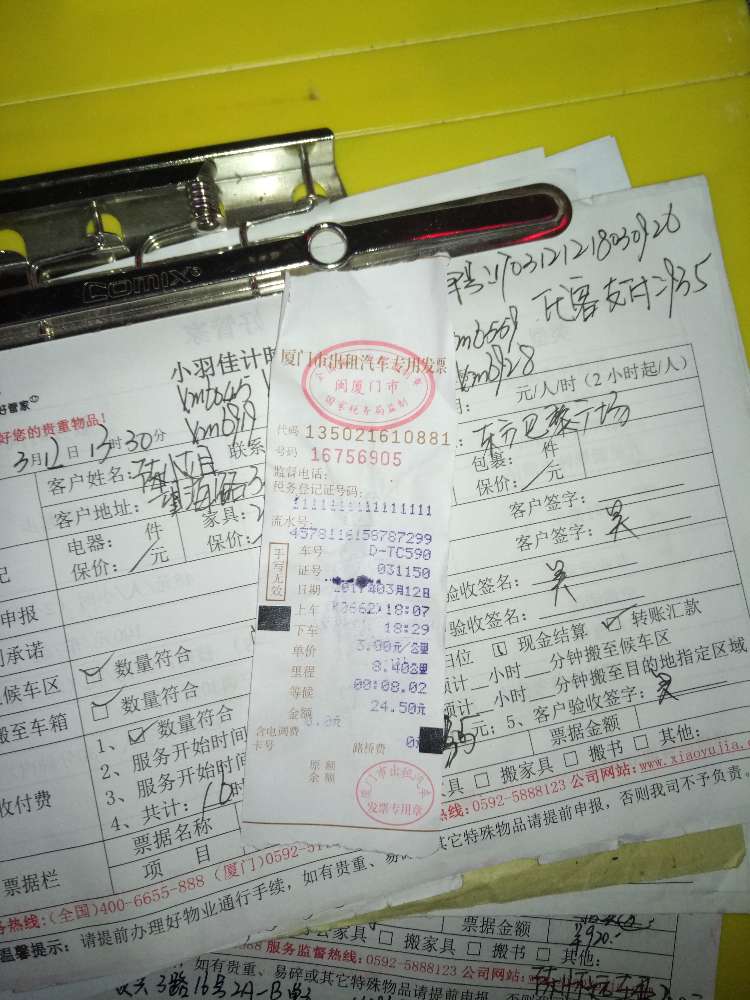 COMIX
好管家
小羽佳计时
好管家
好您的贵重物品!
3月12日13时30分
联系
客户姓名:
客户地址:
电器: 件
家具:
保价: 元
保价:
申报
承诺
候车区
数量符合
搬至车箱
数量符合
1、 数量符合
2、服务开始时间
3、服务开始时间
收付费
4、共计:
票据名称
票据栏
项 目
务热线:(全国)400-6655-888 (厦门)0592-5
温馨提示: 请提前办理好物业通行手续, 如有贵重、易
厦门市出租汽车专用发票
闽厦门市
国家税务局监制
代码 135021610881
号码 16756905
监督电话:
税务登记证号码:
1111111111111111
流水号:
4578116156787299
手写无效
车号 D-TC590
证号 031150
日期 2017年03月12日
上车 (0662)18:07
下车 18:29
单价 3.00元/公里
里程 8.40公里
等候 00:08.02
金额 24.50元
含电调费 3.0元
卡号
路桥费 0元
原额
余额
厦门市出租汽车
发票专用章
1703121218030926
代客支付:935
元/人/时 (2小时起/人)
包裹: 件
保价: 元
客户签字:
客户签字: 吴
验收签名: 吴
验收签名: 吴
归位 现金结算 转账汇款
预计 小时 分钟搬至候车区
预计 小时 分钟搬至目的地指定区域
元; 5、客户验收签字: 吴
票据金额
具 搬家具 搬书 其他:
热线: 0592-5888123 公司网站: www.xiaoyujia.
其它特殊物品请提前申报, 否则我司不予负责。
票据金额 ¥920.-
公家具 搬家具 搬书 其他:
888 服务监督热线: 0592-5888123 公司网站:
如有贵重、易碎或其它特殊物品请提前申报, 否则
3路16号2A-B